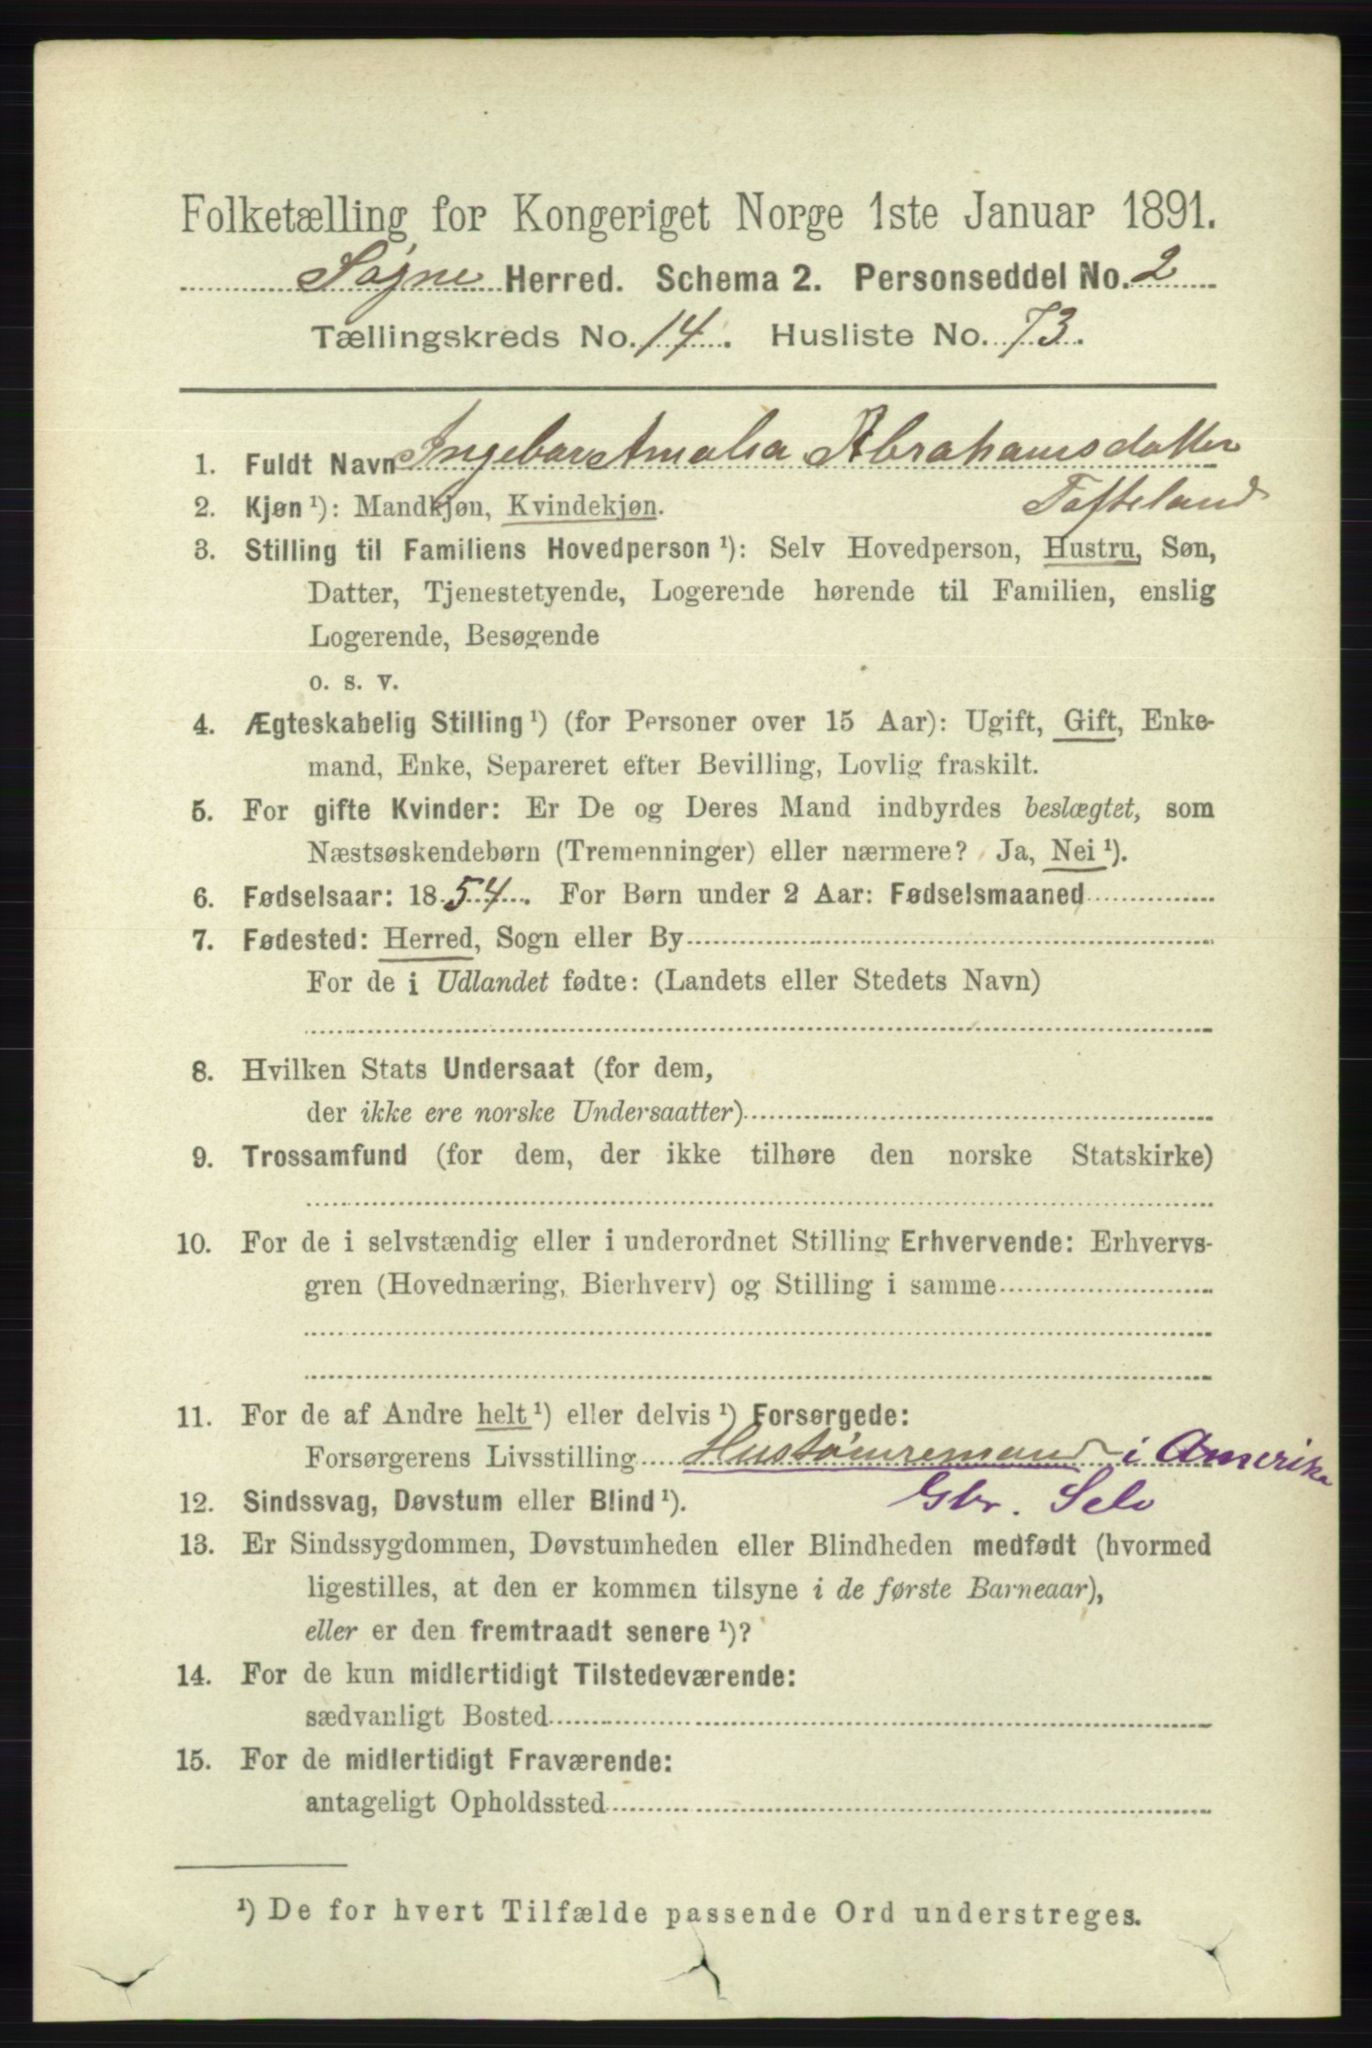 Folketælling for Kongeriget Norge 1ste Januar 1891.
Søgne Herred. Schema 2. Personseddel No. 2
Tællingskreds No. 14. Husliste No. 73.
1. Fuldt Navn Ingebor Amalia Abrahamsdatter
Tofteland
2. Kjøn ¹): Mandkjøn, Kvindekjøn.
3. Stilling til Familiens Hovedperson ¹): Selv Hovedperson, Hustru, Søn,
Datter, Tjenestetyende, Logerende hørende til Familien, enslig
Logerende, Besøgende
o. s. v.
4. Ægteskabelig Stilling ¹) (for Personer over 15 Aar): Ugift, Gift, Enke-
mand, Enke, Separeret efter Bevilling, Lovlig fraskilt.
5. For gifte Kvinder: Er De og Deres Mand indbyrdes beslægtet, som
Næstsøskendebørn (Tremenninger) eller nærmere? Ja, Nei ¹).
6. Fødselsaar: 1854. For Børn under 2 Aar: Fødselsmaaned
7. Fødested: Herred, Sogn eller By
For de i Udlandet fødte: (Landets eller Stedets Navn)
8. Hvilken Stats Undersaat (for dem,
der ikke ere norske Undersaatter)
9. Trossamfund (for dem, der ikke tilhøre den norske Statskirke)
10. For de i selvstændig eller i underordnet Stilling Erhvervende: Erhvervs-
gren (Hovednæring, Bierhverv) og Stilling i samme
11. For de af Andre helt ¹) eller delvis ¹) Forsørgede:
Forsørgerens Livsstilling Hustømremand i Amerika
Gbr. Selv
12. Sindssvag, Døvstum eller Blind ¹).
13. Er Sindssygdommen, Døvstumheden eller Blindheden medfødt (hvormed
ligestilles, at den er kommen tilsyne i de første Barneaar),
eller er den fremtraadt senere ¹)?
14. For de kun midlertidigt Tilstedeværende:
sædvanligt Bosted
15. For de midlertidigt Fraværende:
antageligt Opholdssted
¹) De for hvert Tilfælde passende Ord understreges.